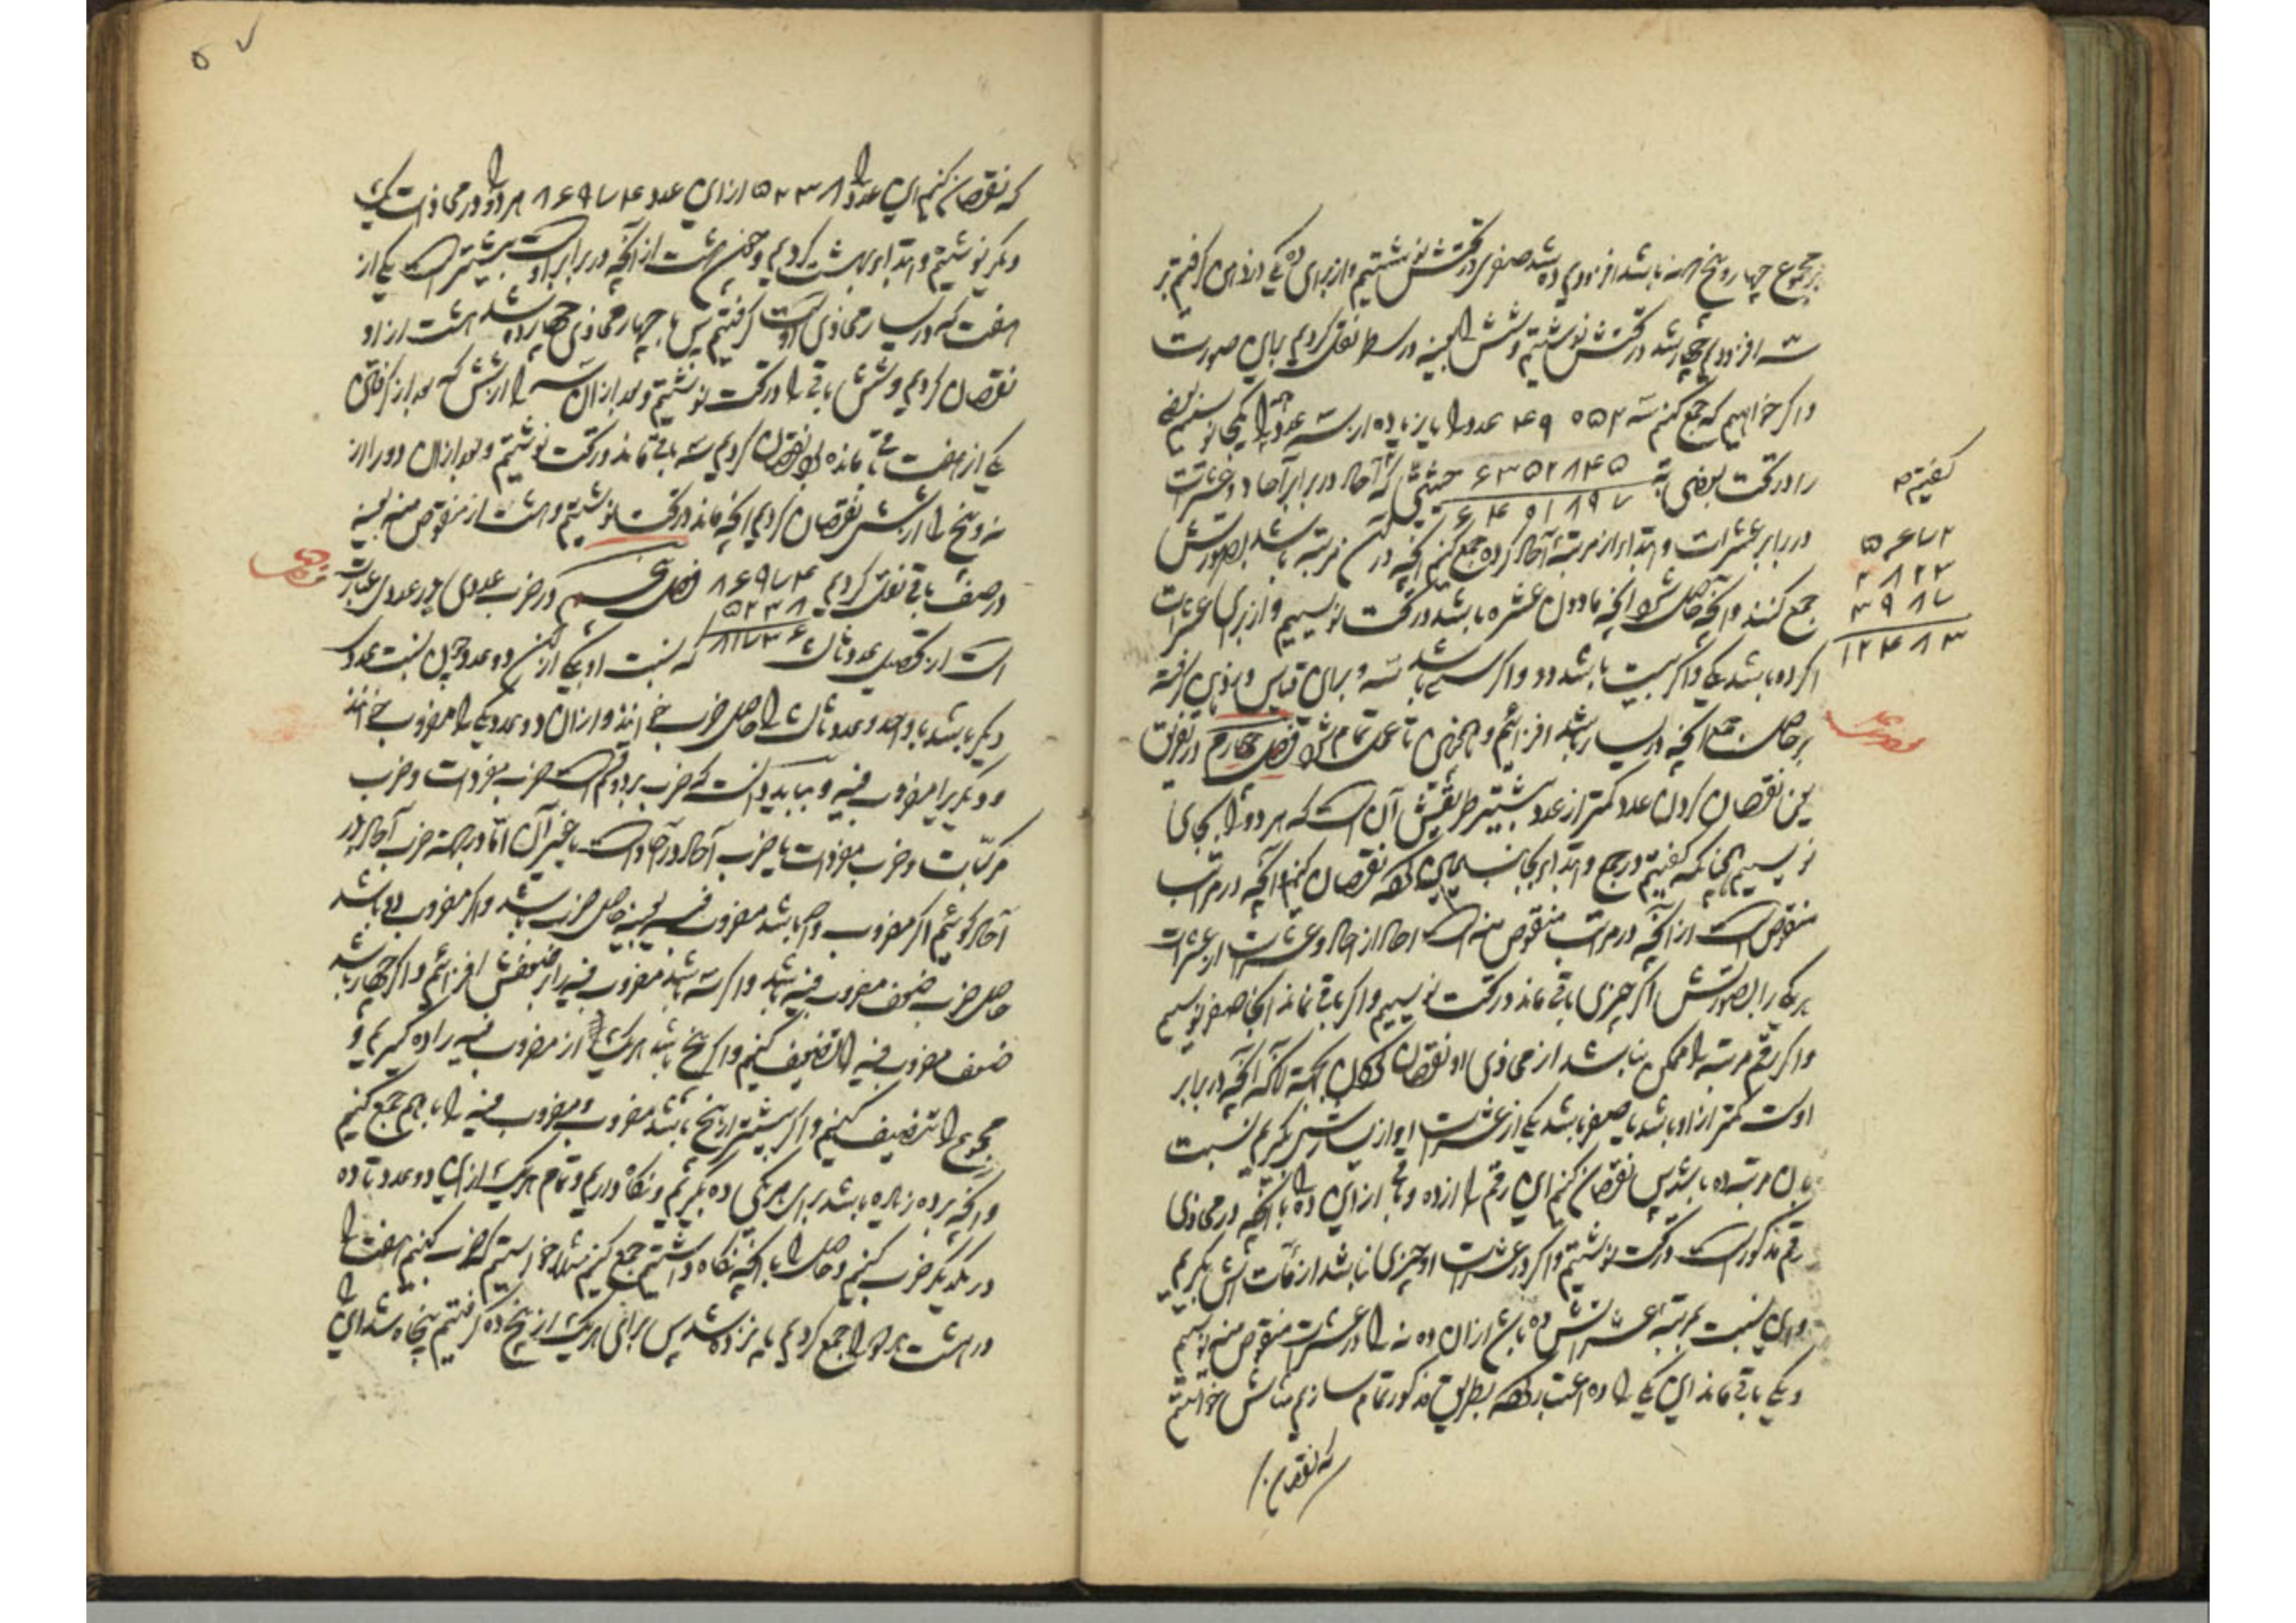 بر مجموع چهار و پنج که نه باشد افزودیم ده شد صفری در تحتش نوشتیم و از برای ده یکی در ذهن گرفتیم بر
سه افزودیم چهار شد در تحتش نوشتیم و شش را بعینه در سطر نقل کردیم باین صورت
و اگر خواهیم که جمع کنیم سه عدد را یا زیاده از سه عدد همه را یکجا نویسیم بعضی
۴۹ ۰۵۲
را در تحت بعضی
۶۳۵۲۸۴۵
۶۴۰۱۸۹۷
حیثیتی که آحاد در برابر آحاد و عشرات
در برابر عشرات و ابتدا از مرتبهٔ آحاد کرده جمع کنیم آنچه در آن مرتبه باشد بصورتش
جمع کنند و آنچه حاصل شود آنچه مادون عشره باشد در تحت نویسیم و از برای عشرات
اگر ده باشد یکی و اگر بیست باشد دو و اگر سی باشد سه و برین قیاس در ذهن گرفته
بر حاصل جمع آنچه در یسار باشد افزائیم و همچنین تا عمل تمام شود فصل چهارم در تفریق
یعنی نقصان کردن عدد کمتر از عدد بیشتر طریقش آن است که هر دو را بجای
نویسیم چنانکه گفتیم در جمع و ابتدا بجانب یمین کرده نقصان کنیم آنچه در مراتب
منقوص است از آنچه در مراتب منقوص منه است آحاد از آحاد و عشرات از عشرات
هر یکی را بصورتش اگر چیزی باقی ماند در تحت نویسیم و اگر باقی نماند آنجا صفر نویسیم
و اگر رقم مرتبه را ممکن نباشد از محاذی او نقصان کردن بجهة آنکه آنچه در برابر
اوست کمتر از او باشد یا صفر باشد یکی از عشرات او از یسارش بگیریم نسبت
بآن مرتبه ده باشد پس نقصان کنیم این رقم را از ده و باقی ازین ده را با آنچه در محاذی
رقم مذکور است در تحت نوشتیم و اگر در عشرات او چیزی نباشد از مآتش بگیریم
و این نسبت بمرتبهٔ عشراتش ده باشد از آن ده نه را در عشرات منقوص منه نویسیم
و یکی باقی ماند این یکی را ده اعتبار کرده بطریق مذکور تمام سازیم مثالش خواستیم
که نقصان
گفتیم
۵۶۷۲
۲۸۲۳
۳۹۸۷
۱۲۴۸۳
که نقصان کنیم این عدد را ۵۲۳۸ ازین عدد ۸۶۹۷۴ هر دو را در محاذات یک
دیگر نوشتیم و ابتدا بهشت کردیم و چون هشت از آنچه در برابر اوست بیشتر است یکی از
هفت که در یسار محاذی اوست گرفتیم پس با چهار محاذی چهارده شد هشت از او
نقصان کردیم و شش باقی را در تحت نوشتیم و بعد از آن سه را از شش که بعد از گرفتن
یکی از هفت باقی مانده بود نقصان کردیم سه باقی ماند در تحت نوشتیم و بعد از آن دو را از
نه و پنج را از شش نقصان کردیم آنچه ماند در تحت نوشتیم و هشت از منقوص منه بعینه
در صف باقی نقل کردیم
۸۶۹۷۴
۵۲۳۸
۸۱۷۳۶
فصل پنجم در ضرب عددی در عددی عبارت
است از تحصیل عدد ثالث که نسبت او بیکی از این دو عدد چون نسبت عدد
دیگر باشد با واحد و عدد ثالث را حاصل ضرب خوانند و از آن دو عدد یکی را مضروب خوانند
و دیگری را مضروب فیه و بباید دانست که ضرب بر دو قسم است ضرب مفردات و ضرب
مرکبات و ضرب مفردات یا ضرب آحاد در آحاد است یا غیر آن اما در جهة ضرب آحاد در
آحاد گوئیم اگر مضروب واحد باشد مضروب فیه بعینه حاصل ضرب باشد و اگر مضروب دو باشد
حاصل ضرب ضعف مضروب فیه باشد و اگر سه باشد مضروب فیه را بر ضعفش افزائیم و اگر چهار باشد
ضعف مضروب فیه را تضعیف کنیم و اگر پنج باشد هر یک از مضروب فیه را ده گیریم و
مجموع را تنصیف کنیم و اگر بیشتر از پنج باشد مضروب و مضروب فیه را با هم جمع کنیم
و آنچه بر ده زیاده باشد برای هر یکی ده بگیریم و نگاه داریم و تمام هر یک ازین دو عدد تا ده
در یکدیگر ضرب کنیم و حاصل را با آنچه نگاه داشتیم جمع کنیم مثلا خواستیم که ضرب کنیم هفت را
در هشت هر دو را جمع کردیم پانزده شد پس برای هر یک از پنج ده گرفتیم پنجاه شد این